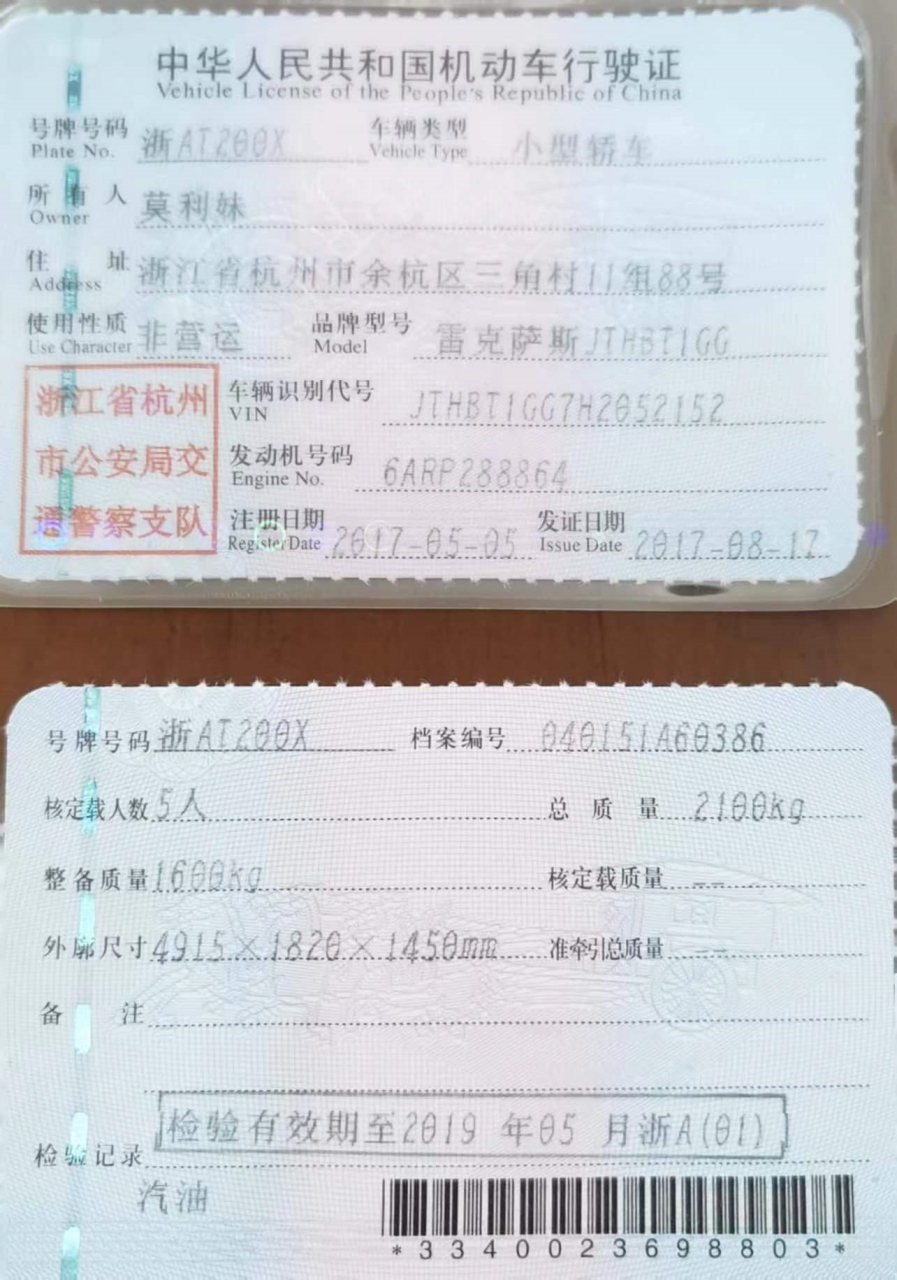 中华人民共和国机动车行驶证
Vehicle License of the People's Republic of China
号牌号码 浙AT200X 车辆类型 小型轿车
Plate No. Vehicle Type
所有人 莫利妹
Owner
住址 浙江省杭州市余杭区三角村11组88号
Address
使用性质 非营运 品牌型号 雷克萨斯JTHBT1GG
Use Character Model
浙江省杭州 车辆识别代号 JTHBT1GG7H2052152
VIN
市公安局交 发动机号码 6ARP288864
Engine No.
通警察支队 注册日期 2017-05-05 发证日期 2017-08-17
Register Date Issue Date
号牌号码 浙AT200X 档案编号 040151A60386
核定载人数 5人 总质量 2100kg
整备质量 1600kg 核定载质量 --
外廓尺寸 4915×1820×1450mm 准牵引总质量 --
备注
检验有效期至2019年05月浙A(01)
检验记录
汽油
*3340023698803*